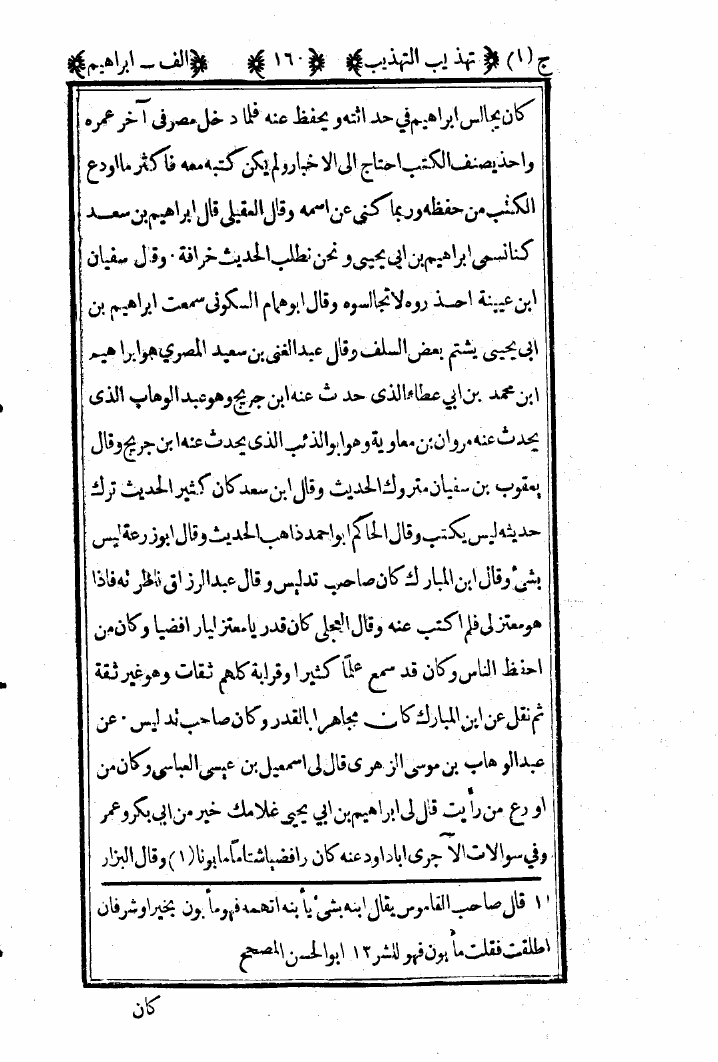 ج (١) ﴿ تهذيب التهذيب ﴾ ﴿ ١٦٠ ﴾ ﴿ الف - ابراهيم ﴾
كان يجالس ابراهيم في حداثته و يحفظ عنه فلما دخل مصر فى آخر عمره
واخذ يصنف الكتب احتاج الى الاخبار ولم يكن كتبه معه فاكثر ما اودع
الكتب من حفظه وربما كنى عن اسمه وقال العقيلى قال ابراهيم بن سعد
كنا نسمى ابراهيم بن ابى يحيى و نحن نطلب الحديث خرافة · وقال سفيان
ابن عيينة احذروه لا تجالسوه وقال ابو همام السكونى سمعت ابراهيم بن
ابى يحيى يشتم بعض السلف وقال عبد الغنى بن سعيد المصري هو ابراهيم
ابن محمد بن ابي عطاء الذى حدث عنه ابن جريج وهو عبد الوهاب الذى
يحدث عنه مروان بن معاوية وهو ابو الذئب الذى يحدث عنه ابن جريج وقال
يعقوب بن سفيان متروك الحديث وقال ابن سعد كان كثير الحديث ترك
حديثه ليس يكتب وقال الحاكم ابو احمد ذاهب الحديث وقال ابو زرعة ليس
بشئ وقال ابن المبارك كان صاحب تدليس وقال عبد الرزاق ناظرته فاذا
هو معتزلى فلم اكتب عنه وقال العجلى كان قدريا معتزليا رافضيا وكان من
احفظ الناس وكان قد سمع علمًا كثيرا وقرابة كلهم ثقات وهو غير ثقة
ثم نقل عن ابن المبارك كان مجاهرا بالقدر وكان صاحب تدليس · عن
عبد الوهاب بن موسى الزهرى قال لى اسمعيل بن عيسى العباسى وكان من
اورع من رأيت قال لى ابراهيم بن ابي يحيى غلامك خير من ابى بكر وعمر
وفي سوالات الآجرى ابا داود عنه كان رافضيا شتامًا مابونا (١) وقال البزار
١ قال صاحب القاموس يقال ابنه بشئ يأبنه اتهمه فهو مأبون بخير او شر فان
اطلقت فقلت مأبون فهو للشر ١٢ ابو الحسن المصحح
كان